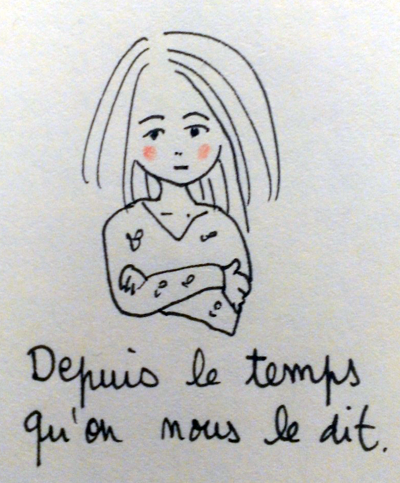 Depuis le temps
qu'on nous le dit.